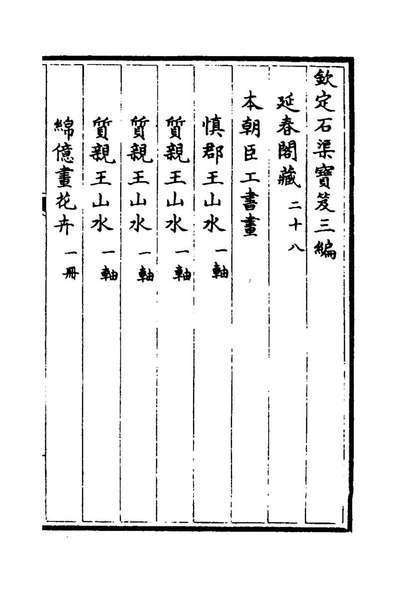 欽定石渠寶笈三編
延春閣藏 二十八
本朝臣工書畫
慎郡王山水 一軸
質親王山水 一軸
質親王山水 一軸
質親王山水 一軸
綿億畫花卉 一冊